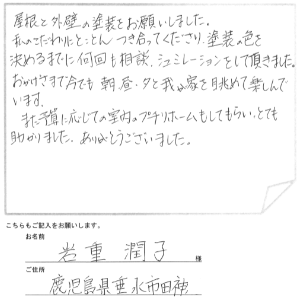 屋根と外壁の塗装をお願いしました。
私のこだわりにとことんつき合ってくださり、塗装の色を
決めるまでに何回も相談、シュミレーションをして頂きました。
おかげさまで今でも朝・昼・夕と我が家を眺めて楽しんで
います。
また予算に応じての室内のプチリホームもしてもらい、とても
助かりました。ありがとうございました。
こちらもご記入をお願いします。
お名前
岩重 潤子 様
ご住所
鹿児島県垂水市田神